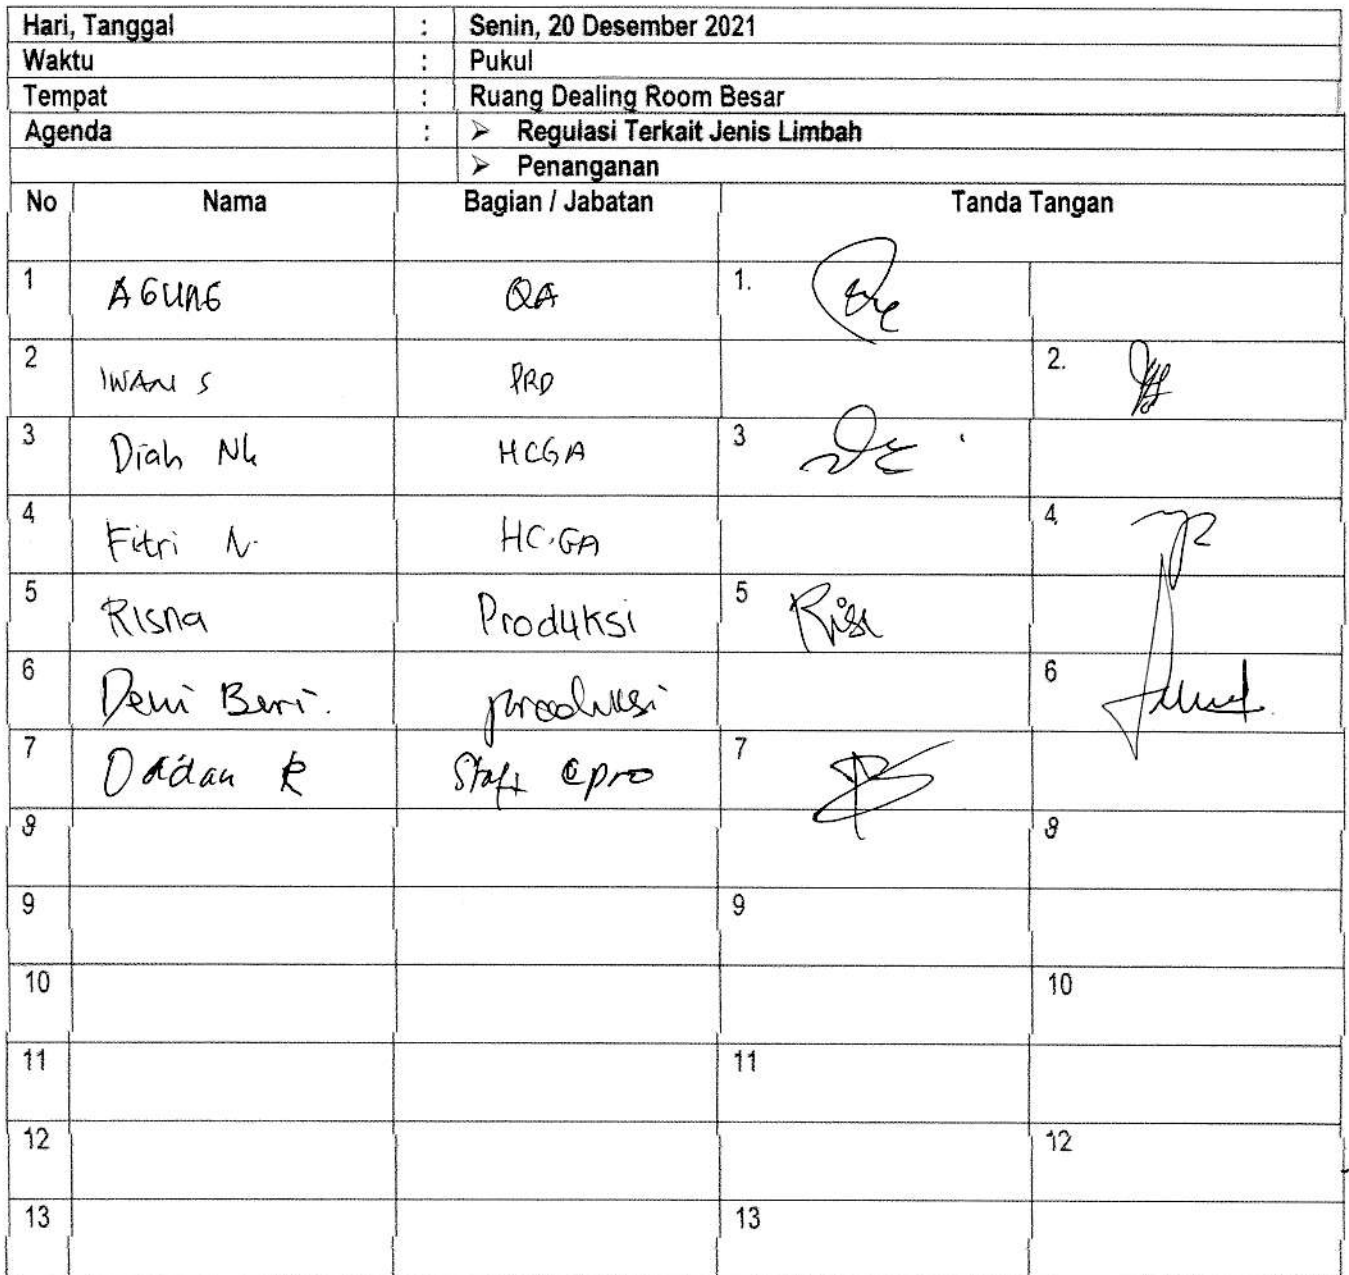 Hari, Tanggal : Senin, 20 Desember 2021
Waktu : Pukul
Tempat : Ruang Dealing Room Besar
Agenda : ➢ Regulasi Terkait Jenis Limbah
➢ Penanganan
No Nama Bagian / Jabatan Tanda Tangan
1 AGUNG QA 1.
2 IWAN S PRD 2.
3 Diah Nk HCGA 3
4 Fitri N. HC.GA 4.
5 Risna Produksi 5
6 Dewi Beri. produksi 6
7 Dadan R Staff 7
8 8
9 9
10 10
11 11
12 12
13 13